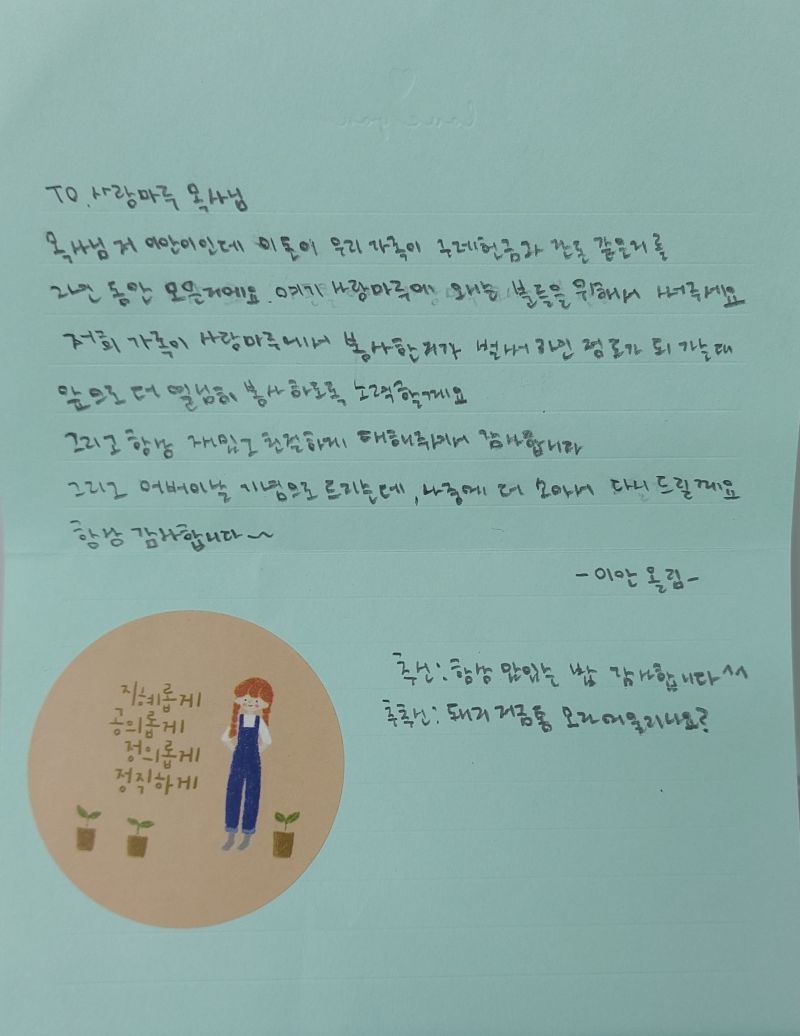 love you
TO. 사랑마루 목사님
목사님 저 이안이인데 이 돈이 우리 가족이 구제헌금과 잔돈 같은거를
1년 동안 모은거에요. 여기 사랑마루에 오는 분들을 위해서 써주세요
저희 가족이 사랑마루에서 봉사한지가 벌써 1년 정도가 되 가는대
앞으로 더 열심히 봉사 하도록 노력할게요
그리고 항상 재밌고 친절하게 대해줘서 감사합니다
그리고 어버이날 기념으로 드리는데, 나중에 더 모아서 다시 드릴게요
항상 감사합니다~
-이안 올림-
추신: 항상 맛있는 밥 감사합니다^^
추추신: 돼지 저금통 모자 어울리나요?
지혜롭게
공의롭게
정의롭게
정직하게